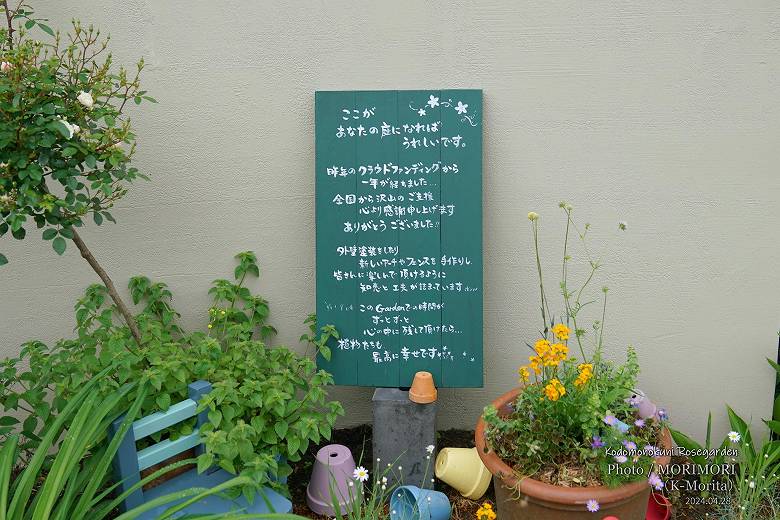 ここが
あなたの庭になれば
うれしいです。
昨年のクラウドファンディングから
一年が経ちました…
全国から沢山のご支援
心より感謝申し上げます
ありがとうございました!!
外壁塗装をしたり
新しいアーチやフェンスを手作りし
皆さんに楽しんで頂けるように
知恵と工夫が詰まっています
このGardenでの時間が
ずっとずっと
心の中に残して頂けたら…
植物たちも
最高に幸せです
Kodomonokuni Rosegarden
Photo / MORIMORI
(K-Morita)
2024.04.28